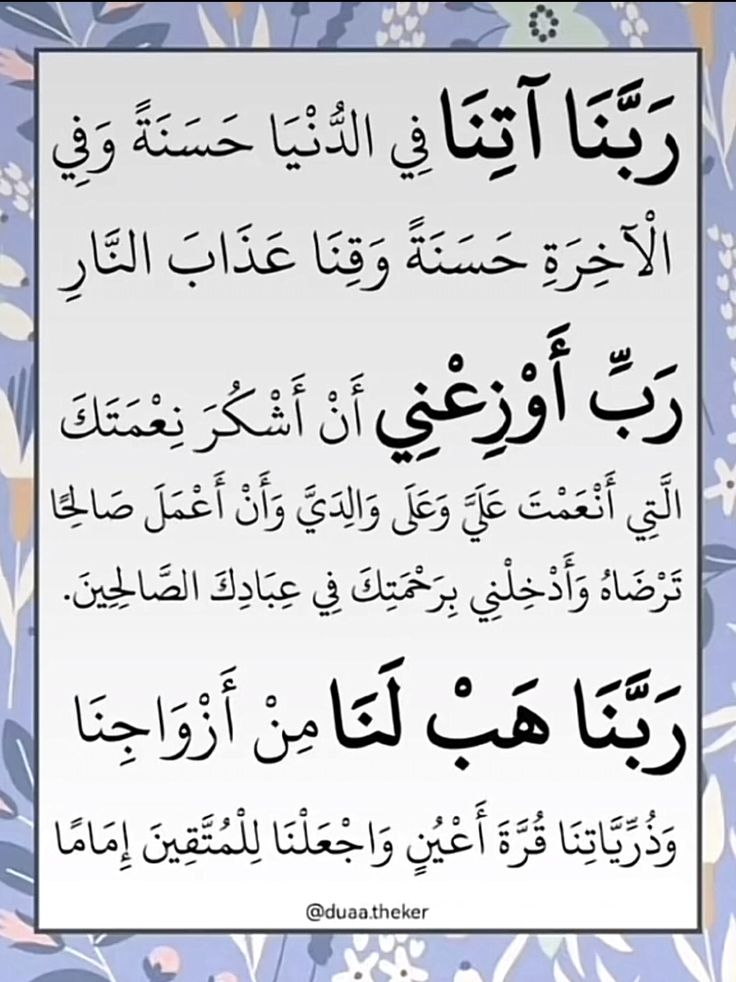 رَبَّنَا آتِنَا فِي الدُّنْيَا حَسَنَةً وَفِي
الْآخِرَةِ حَسَنَةً وَقِنَا عَذَابَ النَّارِ
رَبِّ أَوْزِعْنِي أَنْ أَشْكُرَ نِعْمَتَكَ
الَّتِي أَنْعَمْتَ عَلَيَّ وَعَلَى وَالِدَيَّ وَأَنْ أَعْمَلَ صَالِحًا
تَرْضَاهُ وَأَدْخِلْنِي بِرَحْمَتِكَ فِي عِبَادِكَ الصَّالِحِينَ.
رَبَّنَا هَبْ لَنَا مِنْ أَزْوَاجِنَا
وَذُرِّيَّاتِنَا قُرَّةَ أَعْيُنٍ وَاجْعَلْنَا لِلْمُتَّقِينَ إِمَامًا
@duaa.theker